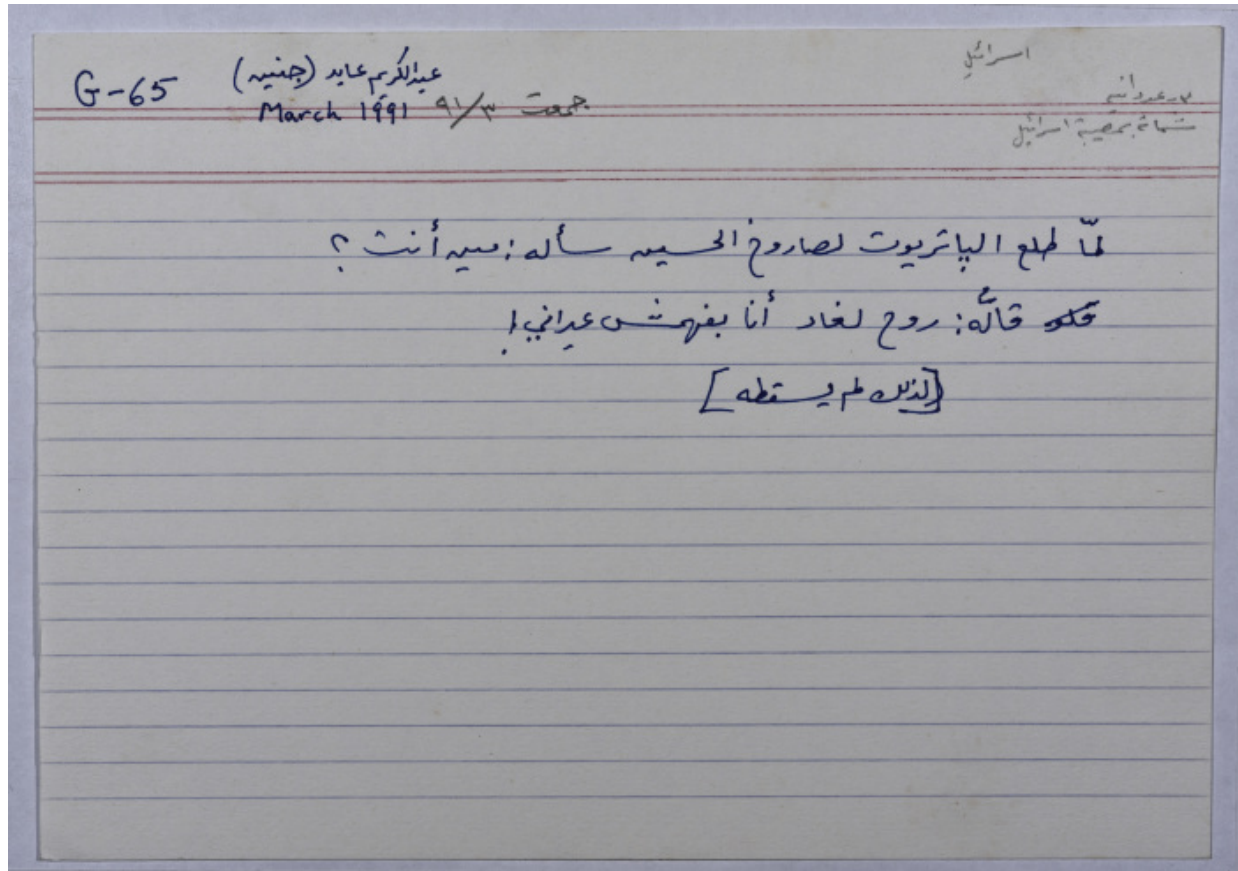 اسرائيل
G-65 عبدالكريم عابد (جنين)
March 1991 جمعت ٩١/٣
عدوانية
شماتة بمصيبة اسرائيل
لمّا طلع الپاتريوت لصاروخ الحسين سأله: مين أنت؟
قالّه: روح لغاد أنا بفهمش عبراني!
[لذلك لم يسقطه]